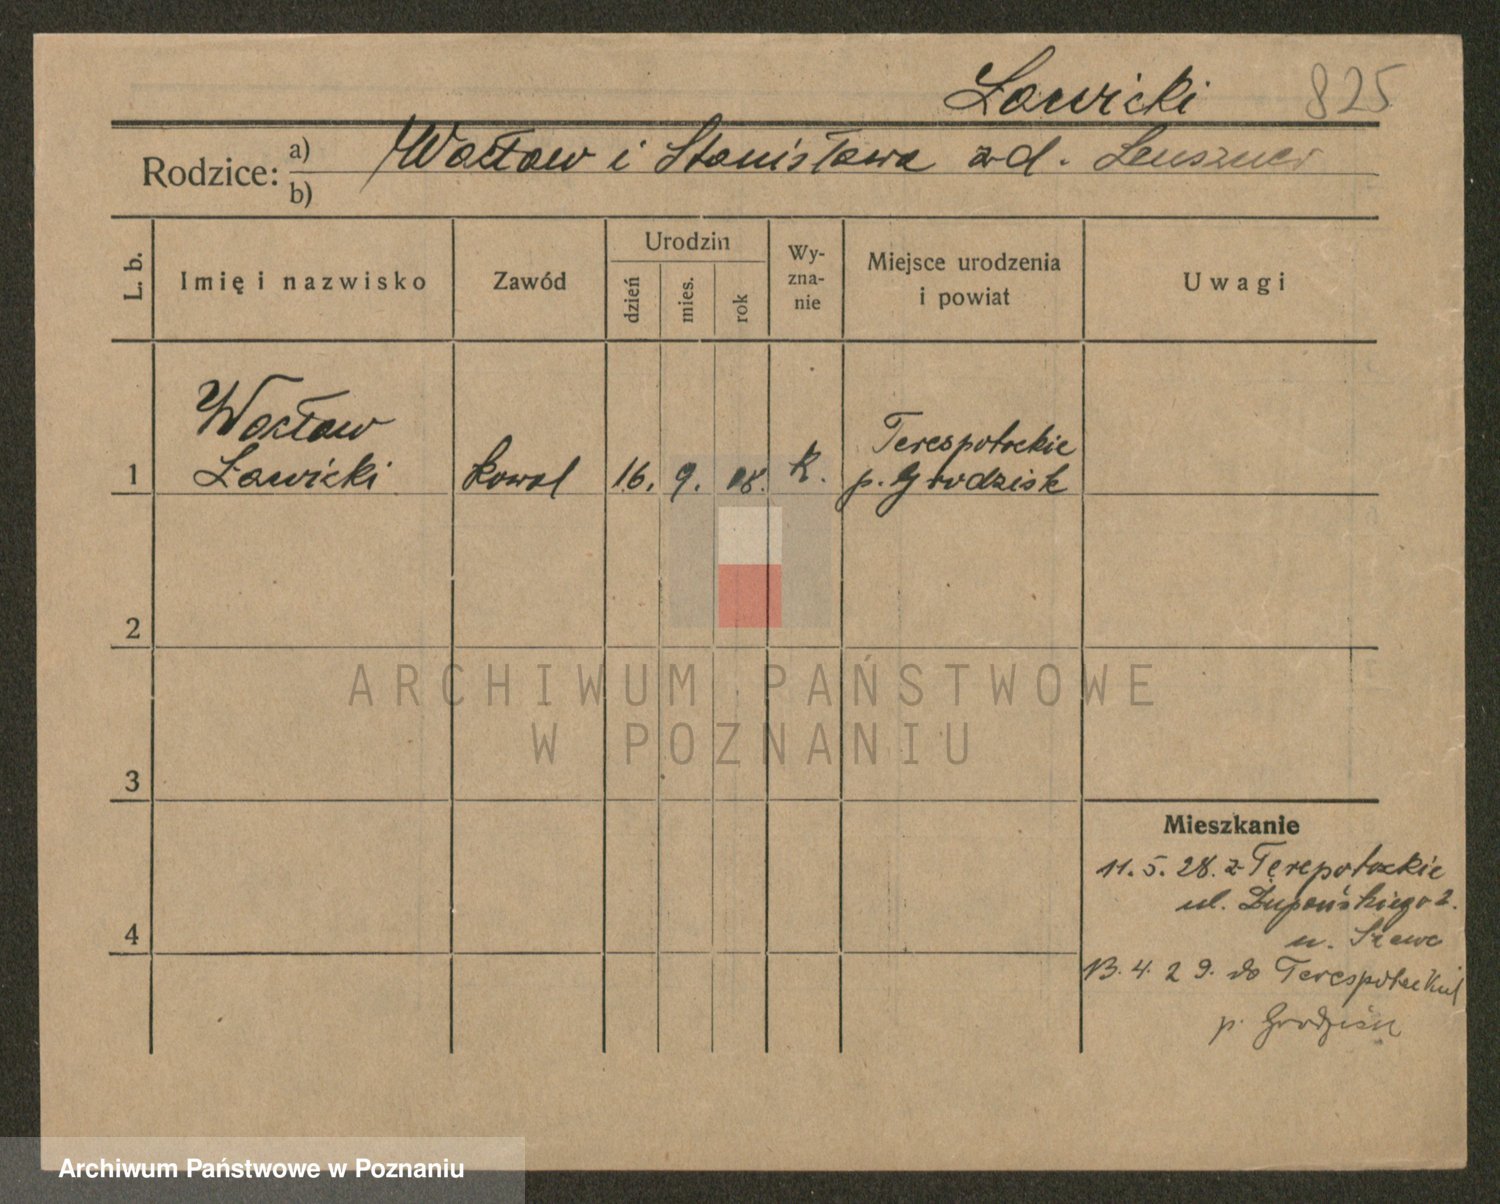 Ławicki 825
Rodzice: a) Wacław i Stanisława zd.
b)
L. b. Imię i nazwisko Zawód Urodzin dzień mies. rok Wy-zna-nie Miejsce urodzenia i powiat Uwagi
Wacław
Terespotockie
1 Ławicki kowal 16. 9. 08. k. p. Grodzisk
2
ARCHIWUM PAŃSTWOWE
W POZNANIU
3
Mieszkanie
11. 5. 28. z Terepotockie
ul. Żupańskiego 2.
4
u.
13. 4. 29. do
p. Grodzisk
Archiwum Państwowe w Poznaniu